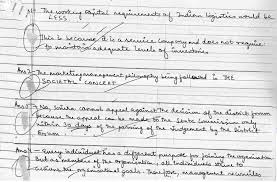 11. The working capital requirements of Indian logistics would be
LESS.
This is because it is a service company and does not require
to maintain adequate levels of inventories.
Ans The marketing management philosophy being followed is THE
SOCIETAL CONCEPT
Ans No, cannot appeal against the decision of the district forum
because the appeal can be made to the State Commission only
within 30 days of the passing of the judgement by the District
Forum.
Ans Every individual has a different purpose for joining the organisation
But as members of the organisation, all individuals strive to
the organisational goals. Therefore, management